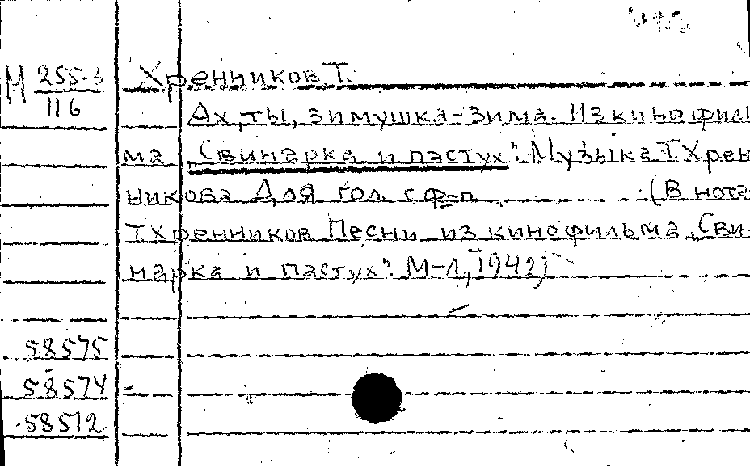 М 255-3
116
Хренников, Т.
Ах, ты, зимушка-зима. Из кинофиль
ма „Свинарка и пастух". Музыка Т Хрен
никова Для гол. с ф-п. (В нота
Т Хренников Песни из кинофильма „Сви
нарка и пастух". М-Л, 1942)
58575
58574
58512